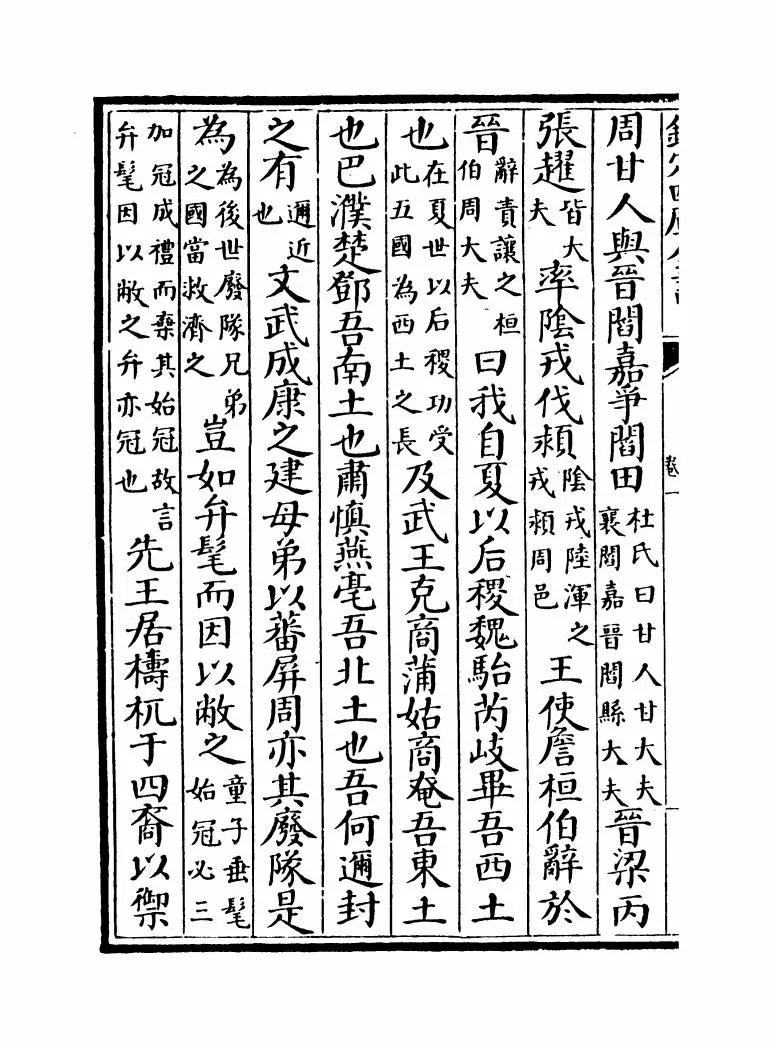 周甘人與晉閻嘉爭閻田杜氏曰甘人甘大夫襄閻嘉晉閻縣大夫晉梁丙
張趯皆大夫率陰戎伐潁陰戎陸渾之戎潁周邑王使詹桓伯辭於
晉辭責讓之桓伯周大夫曰我自夏以后稷魏駘芮岐畢吾西土
也在夏世以后稷功受此五國為西土之長及武王克商蒲姑商奄吾東土
也巴濮楚鄧吾南土也肅慎燕亳吾北土也吾何邇封
之有邇近也文武成康之建母弟以蕃屏周亦其廢隊是
為為後世廢隊兄弟之國當救濟之豈如弁髦而因以敝之童子垂髦始冠必三
加冠成禮而棄其始冠故言弁髦因以敝之弁亦冠也先王居檮杌于四裔以禦